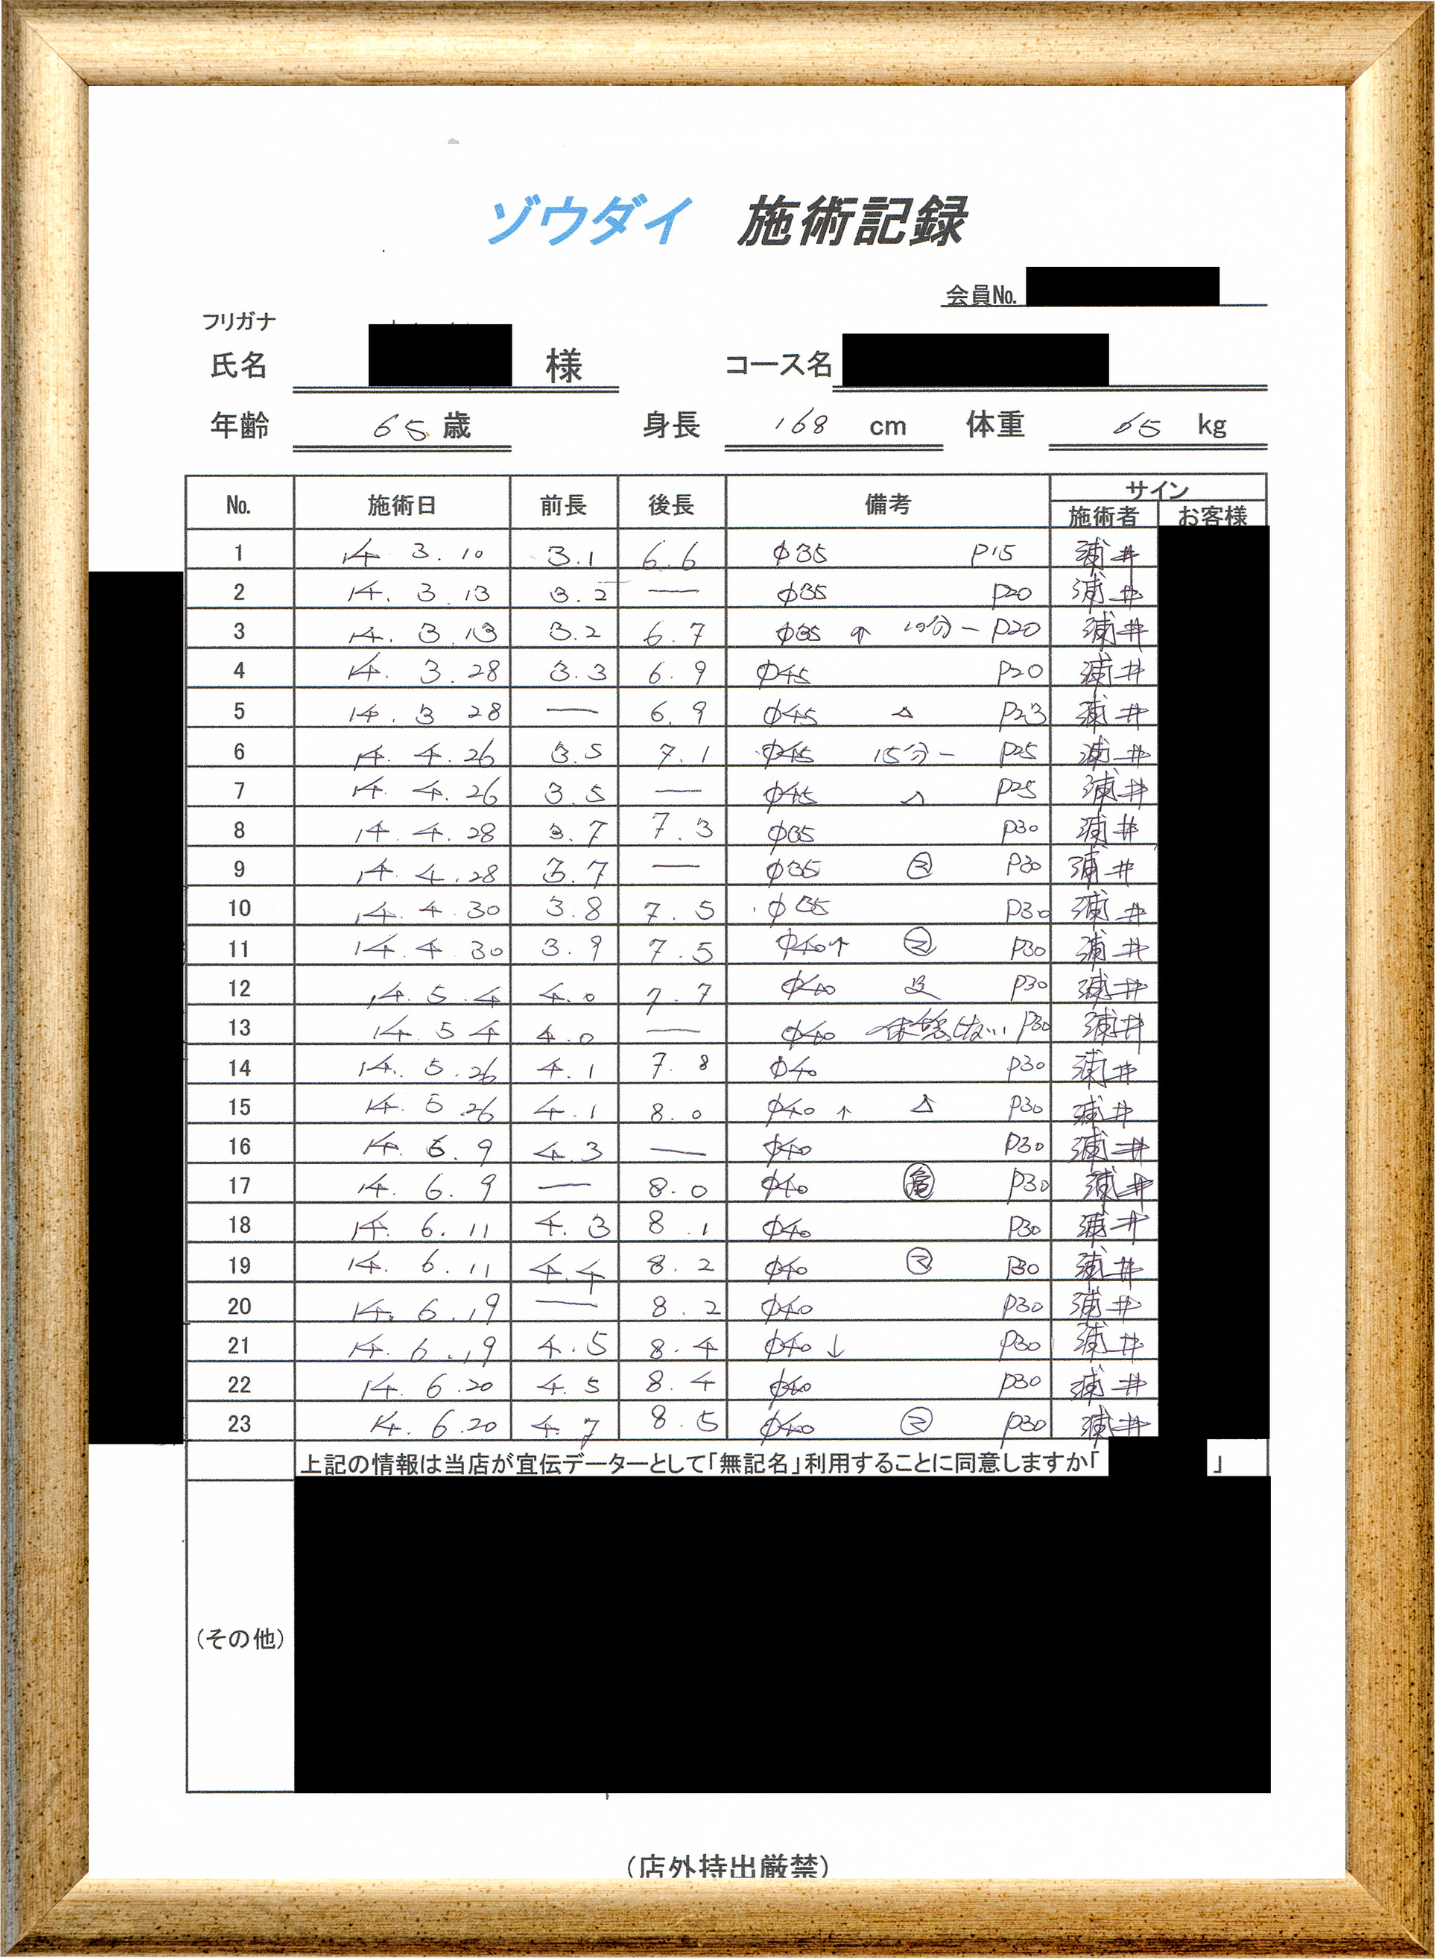 ゾウダイ 施術記録
会員No.
フリガナ
氏名 様 コース名
年齢 65 歳 身長 168 cm 体重 65 kg
No. 施術日 前長 後長 備考 サイン
施術者 お客様
1 14 3.10 3.1 6.6 φ35 P15 浦井
2 14.3.13 3.2 — φ35 P20 浦井
3 14.3.13 3.2 6.7 φ35 ↑ 10分- P20 浦井
4 14.3.28 3.3 6.9 φ45 P20 浦井
5 14.3 28 — 6.9 φ45 △ P23 浦井
6 14.4.26 3.5 7.1 φ45 15分- P25 浦井
7 14.4.26 3.5 — φ45 △ P25 浦井
8 14.4.28 3.7 7.3 φ35 P30 浦井
9 14.4.28 3.7 — φ35 P30 浦井
10 14.4.30 3.8 7.5 φ35 P30 浦井
11 14.4.30 3.9 7.5 φ40↑ ㋮ P30 浦井
12 14.5.4 4.0 7.7 φ40 P30 浦井
13 14 5 4 4.0 — φ40 P30 浦井
14 14.5.26 4.1 7.8 φ40 P30 浦井
15 14.5.26 4.1 8.0 φ40 ↑ △ P30 浦井
16 14.6.9 4.3 — φ40 P30 浦井
17 14.6.9 — 8.0 φ40 P30 浦井
18 14.6.11 4.3 8.1 φ40 P30 浦井
19 14.6.11 4.4 8.2 φ40 ㋮ P30 浦井
20 14.6.19 — 8.2 φ40 P30 浦井
21 14.6.19 4.5 8.4 φ40 ↓ P30 浦井
22 14.6.20 4.5 8.4 φ40 P30 浦井
23 14.6.20 4.7 8.5 φ40 ㋮ P30 浦井
上記の情報は当店が宣伝データーとして「無記名」利用することに同意しますか「 」
（その他）
（店外持出厳禁）